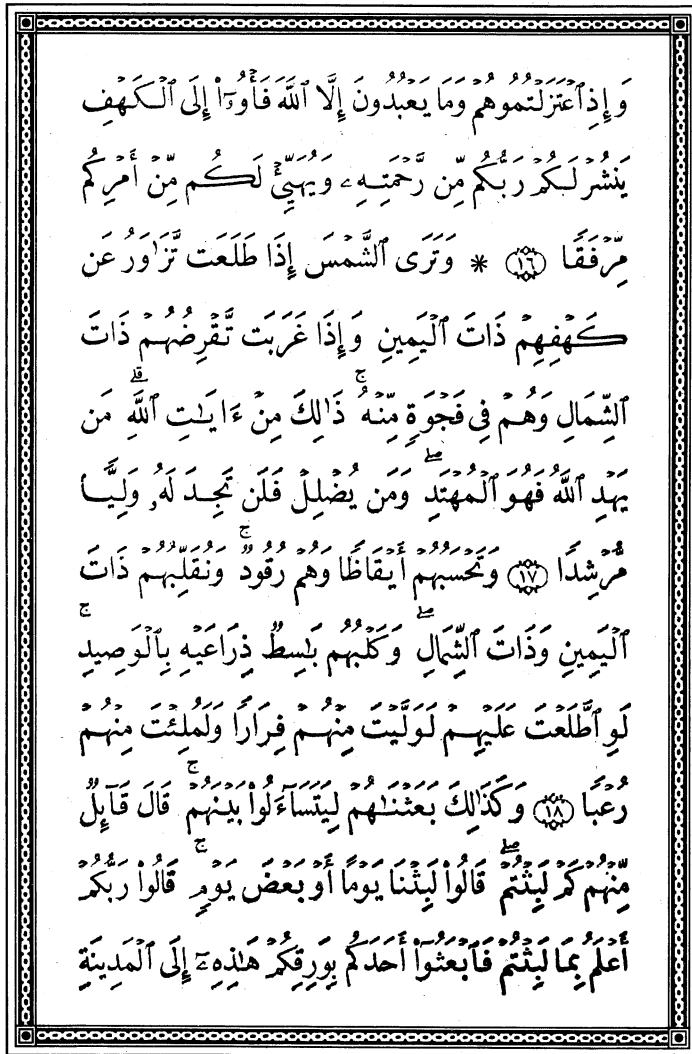 وَإِذِ ٱعْتَزَلْتُمُوهُمْ وَمَا يَعْبُدُونَ إِلَّا ٱللَّهَ فَأْوُۥٓا۟ إِلَى ٱلْكَهْفِ
يَنشُرْ لَكُمْ رَبُّكُم مِّن رَّحْمَتِهِۦ وَيُهَيِّئْ لَكُم مِّنْ أَمْرِكُم
مِّرْفَقًا ﴿١٦﴾ * وَتَرَى ٱلشَّمْسَ إِذَا طَلَعَت تَّزَٰوَرُ عَن
كَهْفِهِمْ ذَاتَ ٱلْيَمِينِ وَإِذَا غَرَبَت تَّقْرِضُهُمْ ذَاتَ
ٱلشِّمَالِ وَهُمْ فِى فَجْوَةٍ مِّنْهُ ۚ ذَٰلِكَ مِنْ ءَايَٰتِ ٱللَّهِ ۗ مَن
يَهْدِ ٱللَّهُ فَهُوَ ٱلْمُهْتَدِ ۖ وَمَن يُضْلِلْ فَلَن تَجِدَ لَهُۥ وَلِيًّا
مُّرْشِدًا ﴿١٧﴾ وَتَحْسَبُهُمْ أَيْقَاظًا وَهُمْ رُقُودٌ ۚ وَنُقَلِّبُهُمْ ذَاتَ
ٱلْيَمِينِ وَذَاتَ ٱلشِّمَالِ ۖ وَكَلْبُهُم بَٰسِطٌ ذِرَاعَيْهِ بِٱلْوَصِيدِ ۚ
لَوِ ٱطَّلَعْتَ عَلَيْهِمْ لَوَلَّيْتَ مِنْهُمْ فِرَارًا وَلَمُلِئْتَ مِنْهُمْ
رُعْبًا ﴿١٨﴾ وَكَذَٰلِكَ بَعَثْنَٰهُمْ لِيَتَسَآءَلُوا۟ بَيْنَهُمْ ۚ قَالَ قَآئِلٌ
مِّنْهُمْ كَمْ لَبِثْتُمْ ۖ قَالُوا۟ لَبِثْنَا يَوْمًا أَوْ بَعْضَ يَوْمٍ ۚ قَالُوا۟ رَبُّكُمْ
أَعْلَمُ بِمَا لَبِثْتُمْ فَٱبْعَثُوٓا۟ أَحَدَكُم بِوَرِقِكُمْ هَٰذِهِۦٓ إِلَى ٱلْمَدِينَةِ